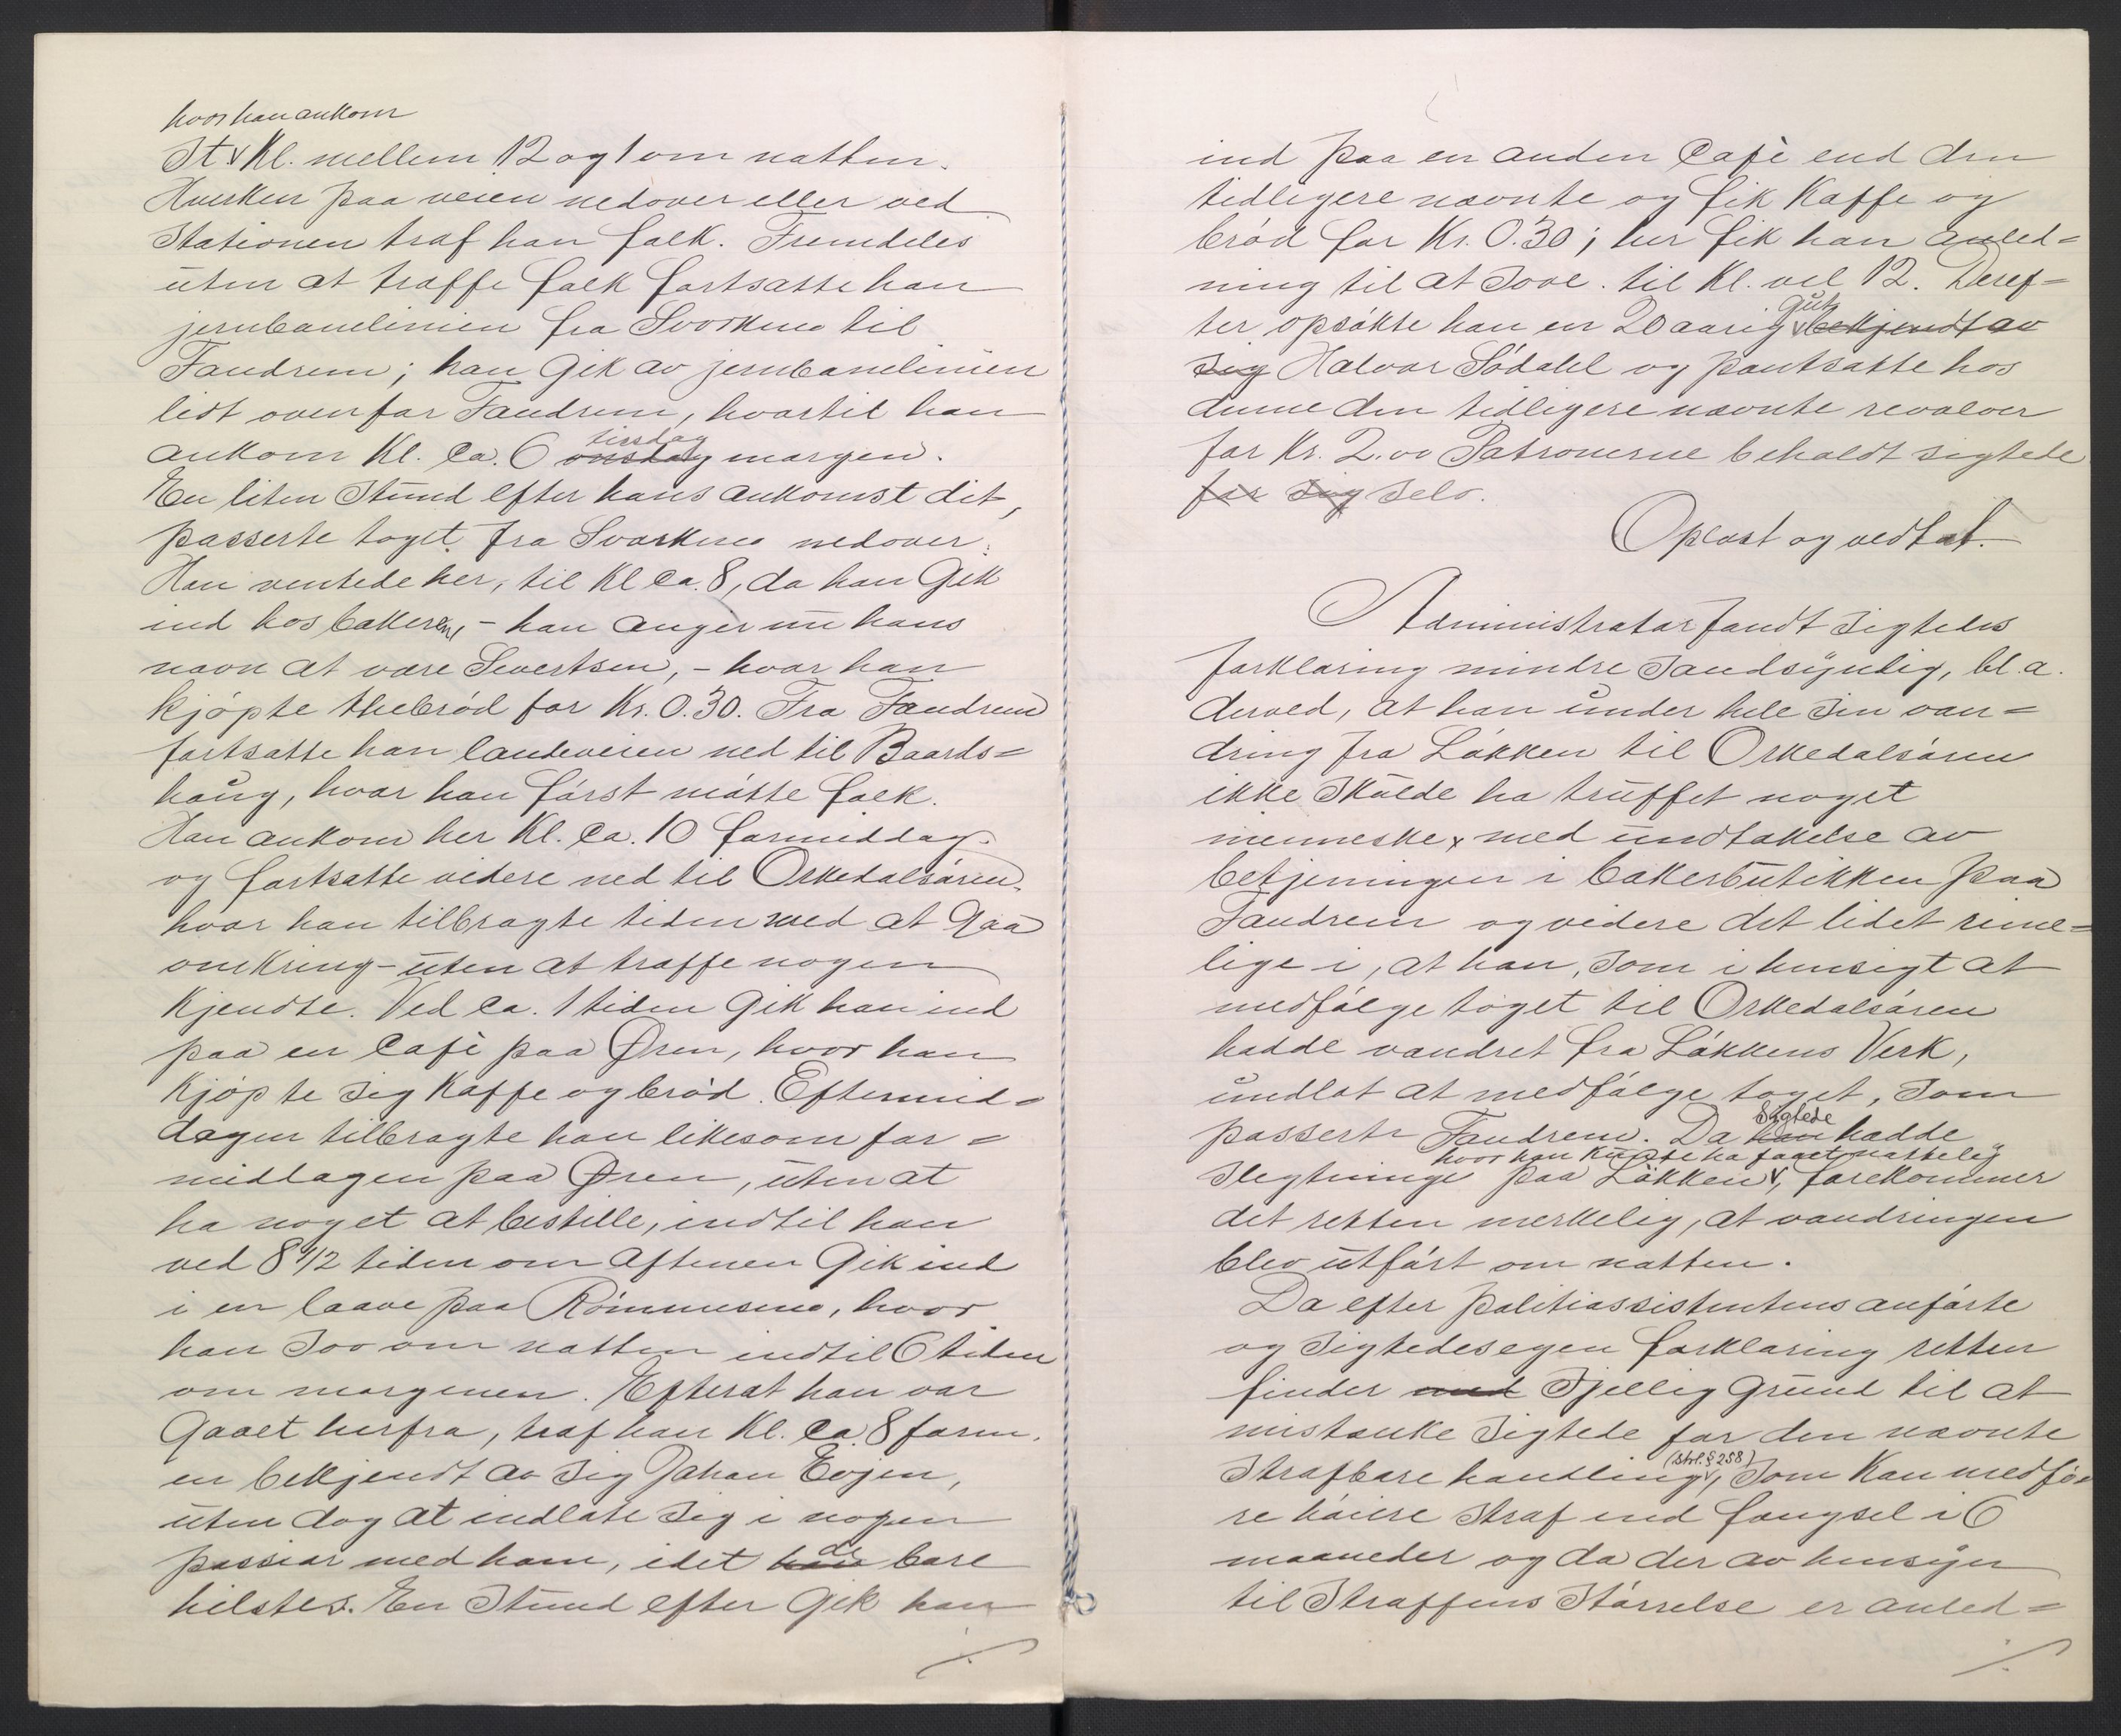 hvor han ankom
St. v Kl. mellem 12 og 1 om natten.
Hverken paa veien nedover eller ved
Stationen traf han folk. Fremdeles
uten at træffe folk fortsatte han
jernbanelinien fra Svorkmo til
Fandrem; han gik av jernbanelinien
lidt ovenfor Fandrem, hvortil han
tirsdag
ankom Kl. ca. 6 onsdag morgen.
En liten stund efter hans ankomst dit,
passerte toget fra Svorkmo nedover.
Han ventede her, til Kl ca. 8, da han gik
ind hos bakeren, - han angir nu hans
navn at være Sivertsen, - hvor han
kjøpte thebrød for Kr. 0.30. Fra Fandrem
fortsatte han landeveien ned til Baards=
haug, hvor han først møtte folk.
Han ankom her Kl. ca. 10 formiddag.
og fortsatte videre ned til Orkedalsøren,
hvor han tilbragte tiden med at gaa
omkring - uten at træffe nogen
kjendte. Ved ca. 1 tiden gik han ind
paa en café paa Øren, hvor han
kjøpte sig kaffe og brød. Eftermid=
dagen tilbragte han likesom for=
middagen paa Øren, uten at
ha noget at bestille, indtil han
ved 8 1/2 tiden om aftenen gik ind
i en laave paa Rømmesmo, hvor
han sov om natten indtil 6 tiden
om morgenen. Efterat han var
gaaet herfra, traf han Kl. ca. 8 form.
en bekjendt av sig Johan Evjen,
uten dog at indlate sig i nogen
de
passiar med ham, idet han bare
hilstes. En stund efter gik han
./.
ind paa en anden café end den
tidligere nævnte og fik kaffe og
brød for Kr. 0.30; her fik han anled=
ning til at sove til Kl. vel 12. Deref=
gut
ter opsøkte han en 20 aarig v bekjendt av
sig Halvor Sødahl og pantsatte hos
denne den tidligere nævnte revolver
for Kr. 2.00 Patronerne beholdt sigtede
for sig selv.
Oplæst og vedtat.
Administrator fandt sigtedes
forklaring mindre sandsynlig, bl.a.
derved, at han under hele sin van=
dring fra Løkken til Orkedalsøren
ikke skulde ha truffet noget
menneske x med undtakelse av
betjeningen i bakerbutikken paa
Fandrem og videre det lidet rime=
lige i, at han, som i hensigt at
medfølge toget til Orkedalsøren
hadde vandret fra Løkkens Verk,
undlot at medfølge toget, som
Sigtede
passerte Fandrem. Da han hadde
hvor han kunde ha faaet natteleie
slegtninge paa Løkken v, forekommer
det retten merkelig, at vandringen
blev utført om natten.
Da efter politiassistentens anførte
og sigtedes egen forklaring retten
finder med skjellig grund til at
mistænke sigtede for den nævnte
(strl. § 258)
strafbare handling v, som kan medfø=
re høiere straf end fængsel i 6
maaneder og da der av hensyn
til straffens størrelse er anled=
./.